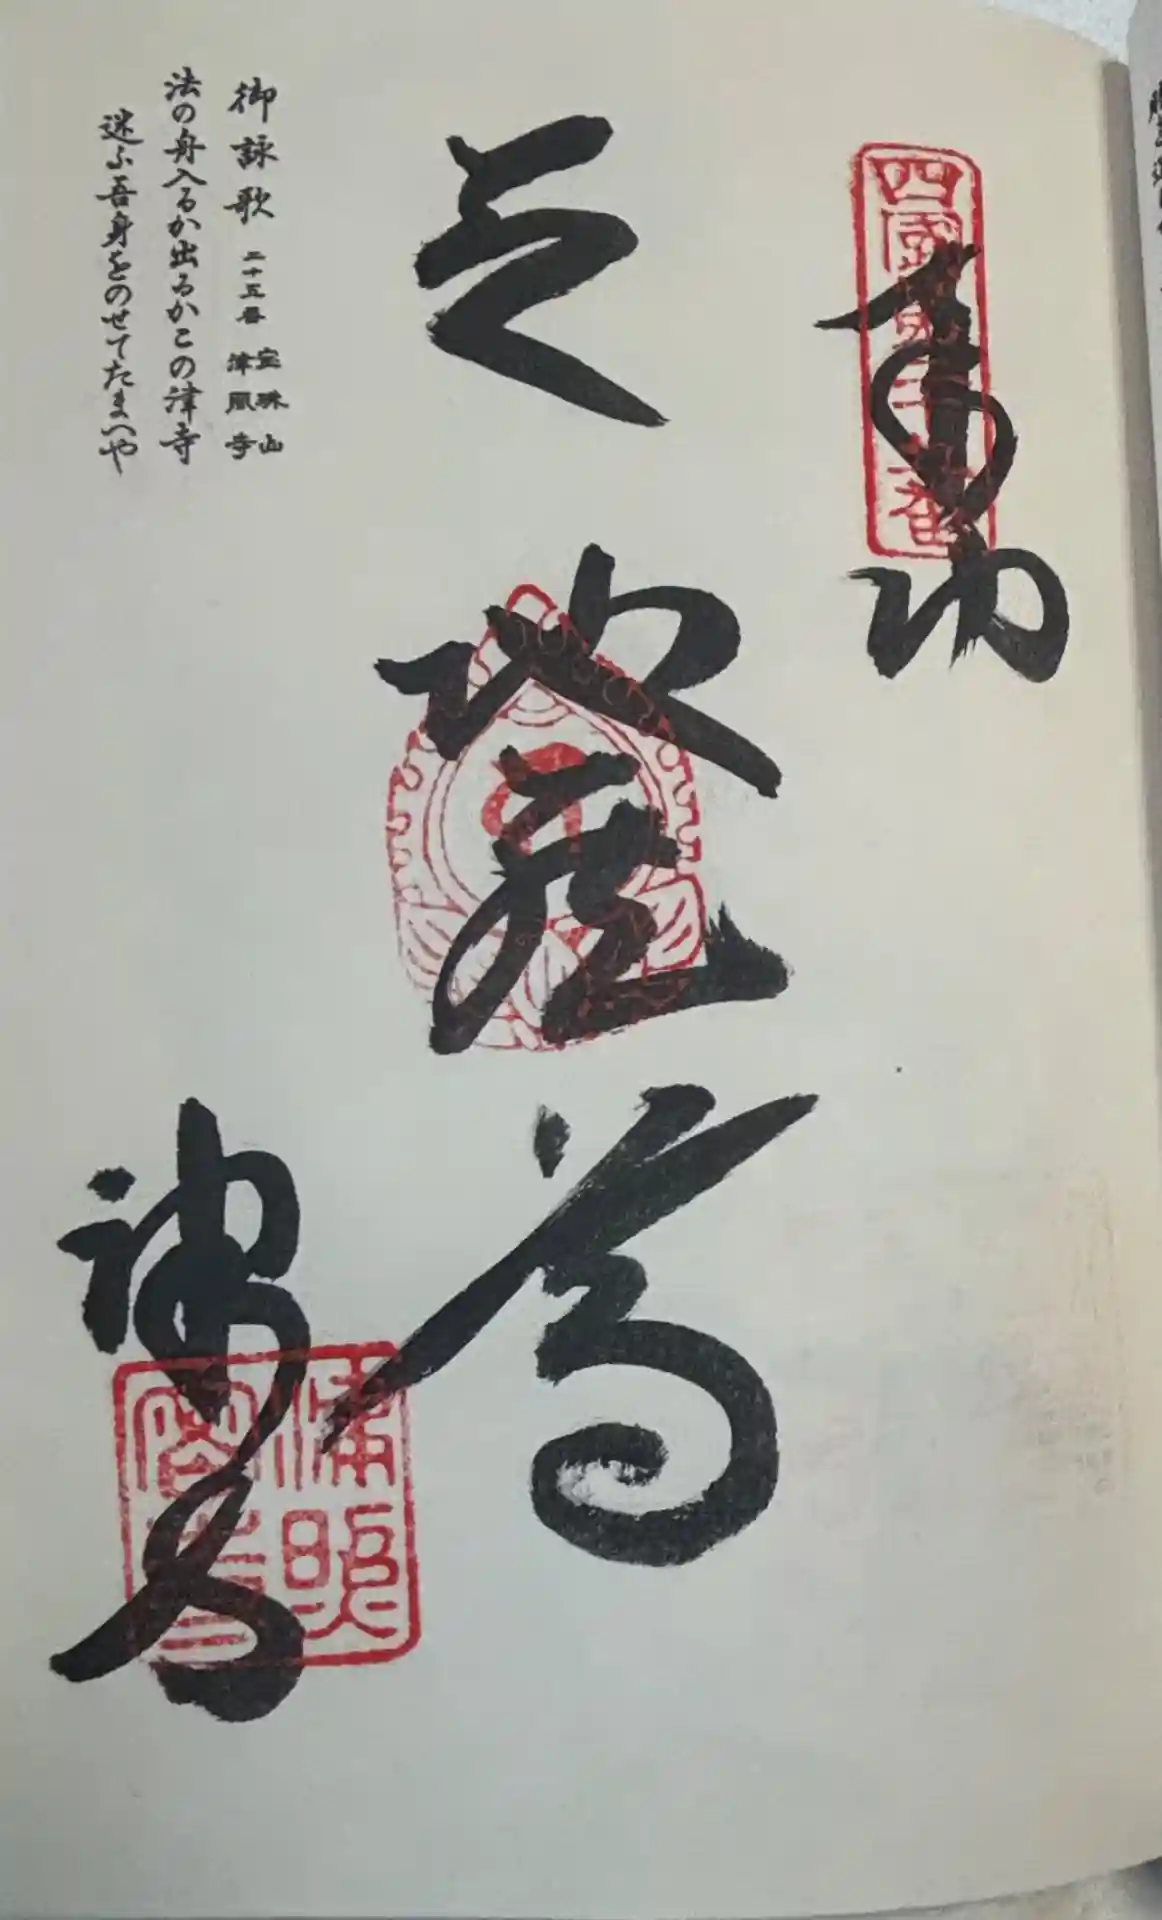 四國第二十五番
奉納
地蔵尊
御詠歌 二十五番 宝珠山 津照寺
法の舟入るか出るかこの津寺
迷ふ吾身をのせてたまへや